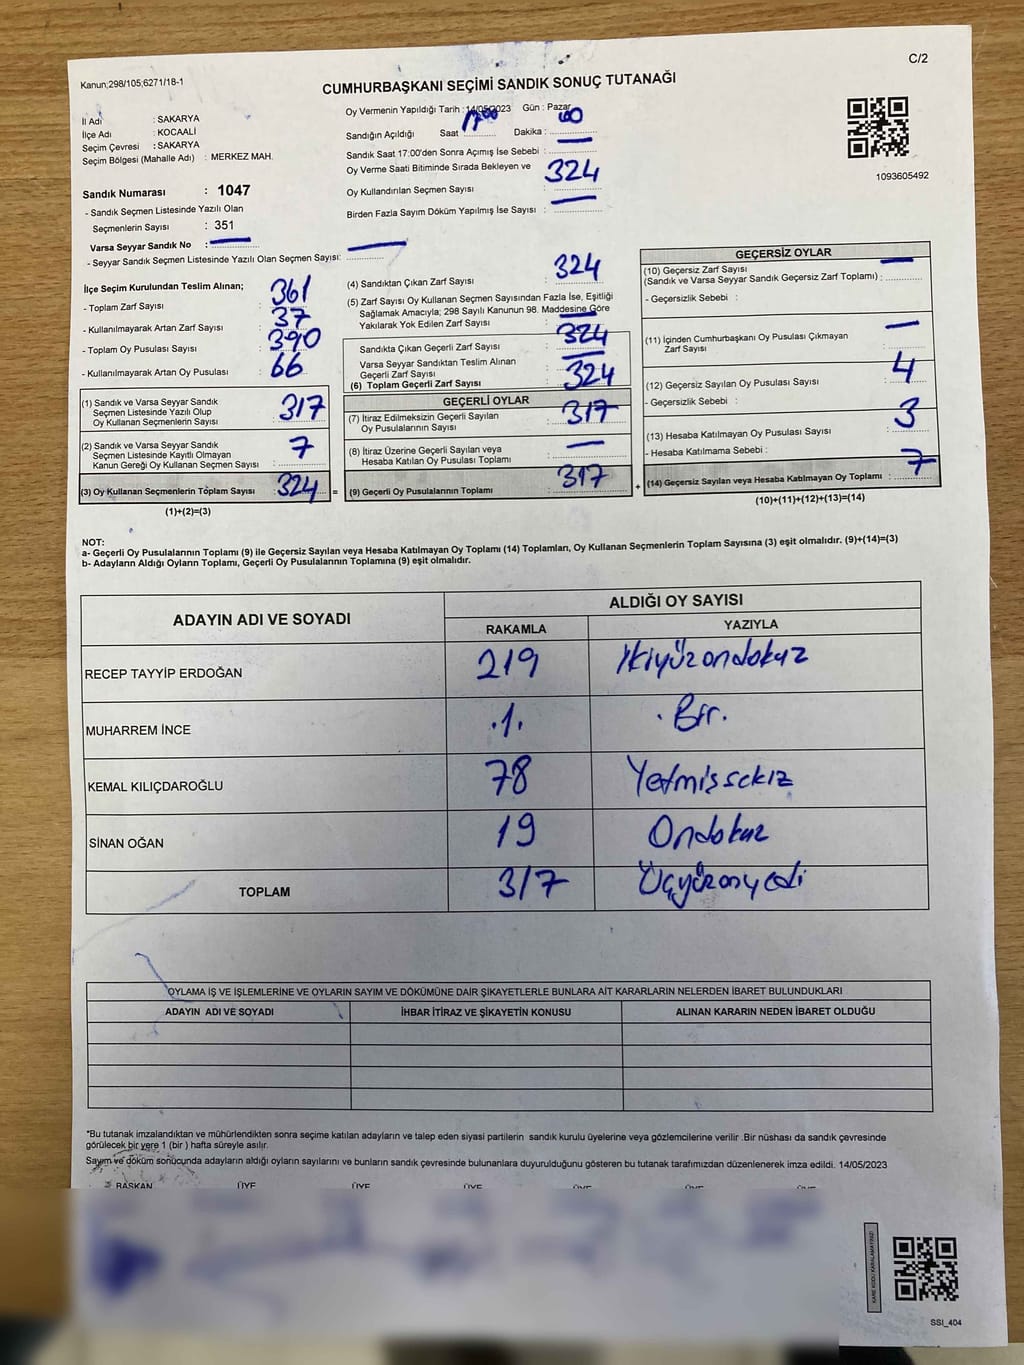 Kanun;298/105;6271/18-1
C/2
CUMHURBAŞKANI SEÇİMİ SANDIK SONUÇ TUTANAĞI
İl Adı : SAKARYA
İlçe Adı : KOCAALİ
Seçim Çevresi : SAKARYA
Seçim Bölgesi (Mahalle Adı) : MERKEZ MAH.
Sandık Numarası : 1047
- Sandık Seçmen Listesinde Yazılı Olan
Seçmenlerin Sayısı : 351
Varsa Seyyar Sandık No : —
- Seyyar Sandık Seçmen Listesinde Yazılı Olan Seçmen Sayısı: —
Oy Vermenin Yapıldığı Tarih : 14/05/2023 Gün : Pazar
Sandığın Açıldığı Saat 17:00 Dakika : 00
Sandık Saat 17:00'den Sonra Açımış İse Sebebi : —
Oy Verme Saati Bitiminde Sırada Bekleyen ve
Oy Kullandırılan Seçmen Sayısı : 324
Birden Fazla Sayım Döküm Yapılmış İse Sayısı : —
1093605492
İlçe Seçim Kurulundan Teslim Alınan;
- Toplam Zarf Sayısı : 361
- Kullanılmayarak Artan Zarf Sayısı : 37
- Toplam Oy Pusulası Sayısı : 390
- Kullanılmayarak Artan Oy Pusulası : 66
(1) Sandık ve Varsa Seyyar Sandık
Seçmen Listesinde Yazılı Olup
Oy Kullanan Seçmenlerin Sayısı : 317
(2) Sandık ve Varsa Seyyar Sandık
Seçmen Listesinde Kayıtlı Olmayan
Kanun Gereği Oy Kullanan Seçmen Sayısı : 7
(3) Oy Kullanan Seçmenlerin Toplam Sayısı : 324 =
(1)+(2)=(3)
(4) Sandıktan Çıkan Zarf Sayısı : 324
(5) Zarf Sayısı Oy Kullanan Seçmen Sayısından Fazla İse, Eşitliği
Sağlamak Amacıyla; 298 Sayılı Kanunun 98. Maddesine Göre
Yakılarak Yok Edilen Zarf Sayısı : —
Sandıkta Çıkan Geçerli Zarf Sayısı : 324
Varsa Seyyar Sandıktan Teslim Alınan
Geçerli Zarf Sayısı : —
(6) Toplam Geçerli Zarf Sayısı : 324
GEÇERLİ OYLAR
(7) İtiraz Edilmeksizin Geçerli Sayılan
Oy Pusulalarının Sayısı : 317
(8) İtiraz Üzerine Geçerli Sayılan veya
Hesaba Katılan Oy Pusulası Toplamı : —
(9) Geçerli Oy Pusulalarının Toplamı : 317 +
GEÇERSİZ OYLAR
(10) Geçersiz Zarf Sayısı
(Sandık ve Varsa Seyyar Sandık Geçersiz Zarf Toplamı) : —
- Geçersizlik Sebebi :
(11) İçinden Cumhurbaşkanı Oy Pusulası Çıkmayan
Zarf Sayısı : —
(12) Geçersiz Sayılan Oy Pusulası Sayısı : 4
- Geçersizlik Sebebi :
(13) Hesaba Katılmayan Oy Pusulası Sayısı : 3
- Hesaba Katılmama Sebebi :
(14) Geçersiz Sayılan veya Hesaba Katılmayan Oy Toplamı : 7
(10)+(11)+(12)+(13)=(14)
NOT:
a- Geçerli Oy Pusulalarının Toplamı (9) ile Geçersiz Sayılan veya Hesaba Katılmayan Oy Toplamı (14) Toplamları, Oy Kullanan Seçmenlerin Toplam Sayısına (3) eşit olmalıdır. (9)+(14)=(3)
b- Adayların Aldığı Oyların Toplamı, Geçerli Oy Pusulalarının Toplamına (9) eşit olmalıdır.
ADAYIN ADI VE SOYADI
ALDIĞI OY SAYISI
RAKAMLA YAZIYLA
RECEP TAYYİP ERDOĞAN 219 İkiyüzondokuz
MUHARREM İNCE .1. . Bir.
KEMAL KILIÇDAROĞLU 78 Yetmişsekiz
SİNAN OĞAN 19 Ondokuz
TOPLAM 317 Üçyüzonyedi
OYLAMA İŞ VE İŞLEMLERİNE VE OYLARIN SAYIM VE DÖKÜMÜNE DAİR ŞİKAYETLERLE BUNLARA AİT KARARLARIN NELERDEN İBARET BULUNDUKLARI
ADAYIN ADI VE SOYADI İHBAR İTİRAZ VE ŞİKAYETİN KONUSU ALINAN KARARIN NEDEN İBARET OLDUĞU
*Bu tutanak imzalandıktan ve mühürlendikten sonra seçime katılan adayların ve talep eden siyasi partilerin sandık kurulu üyelerine veya gözlemcilerine verilir .Bir nüshası da sandık çevresinde
görülecek bir yere 1 (bir ) hafta süreyle asılır.
Sayım ve döküm sonucunda adayların aldığı oyların sayılarını ve bunların sandık çevresinde bulunanlara duyurulduğunu gösteren bu tutanak tarafımızdan düzenlenerek imza edildi. 14/05/2023
BAŞKAN ÜYE ÜYE ÜYE ÜYE ÜYE ÜYE
KARE KODU KARALAMAYINIZ!
SSI_404